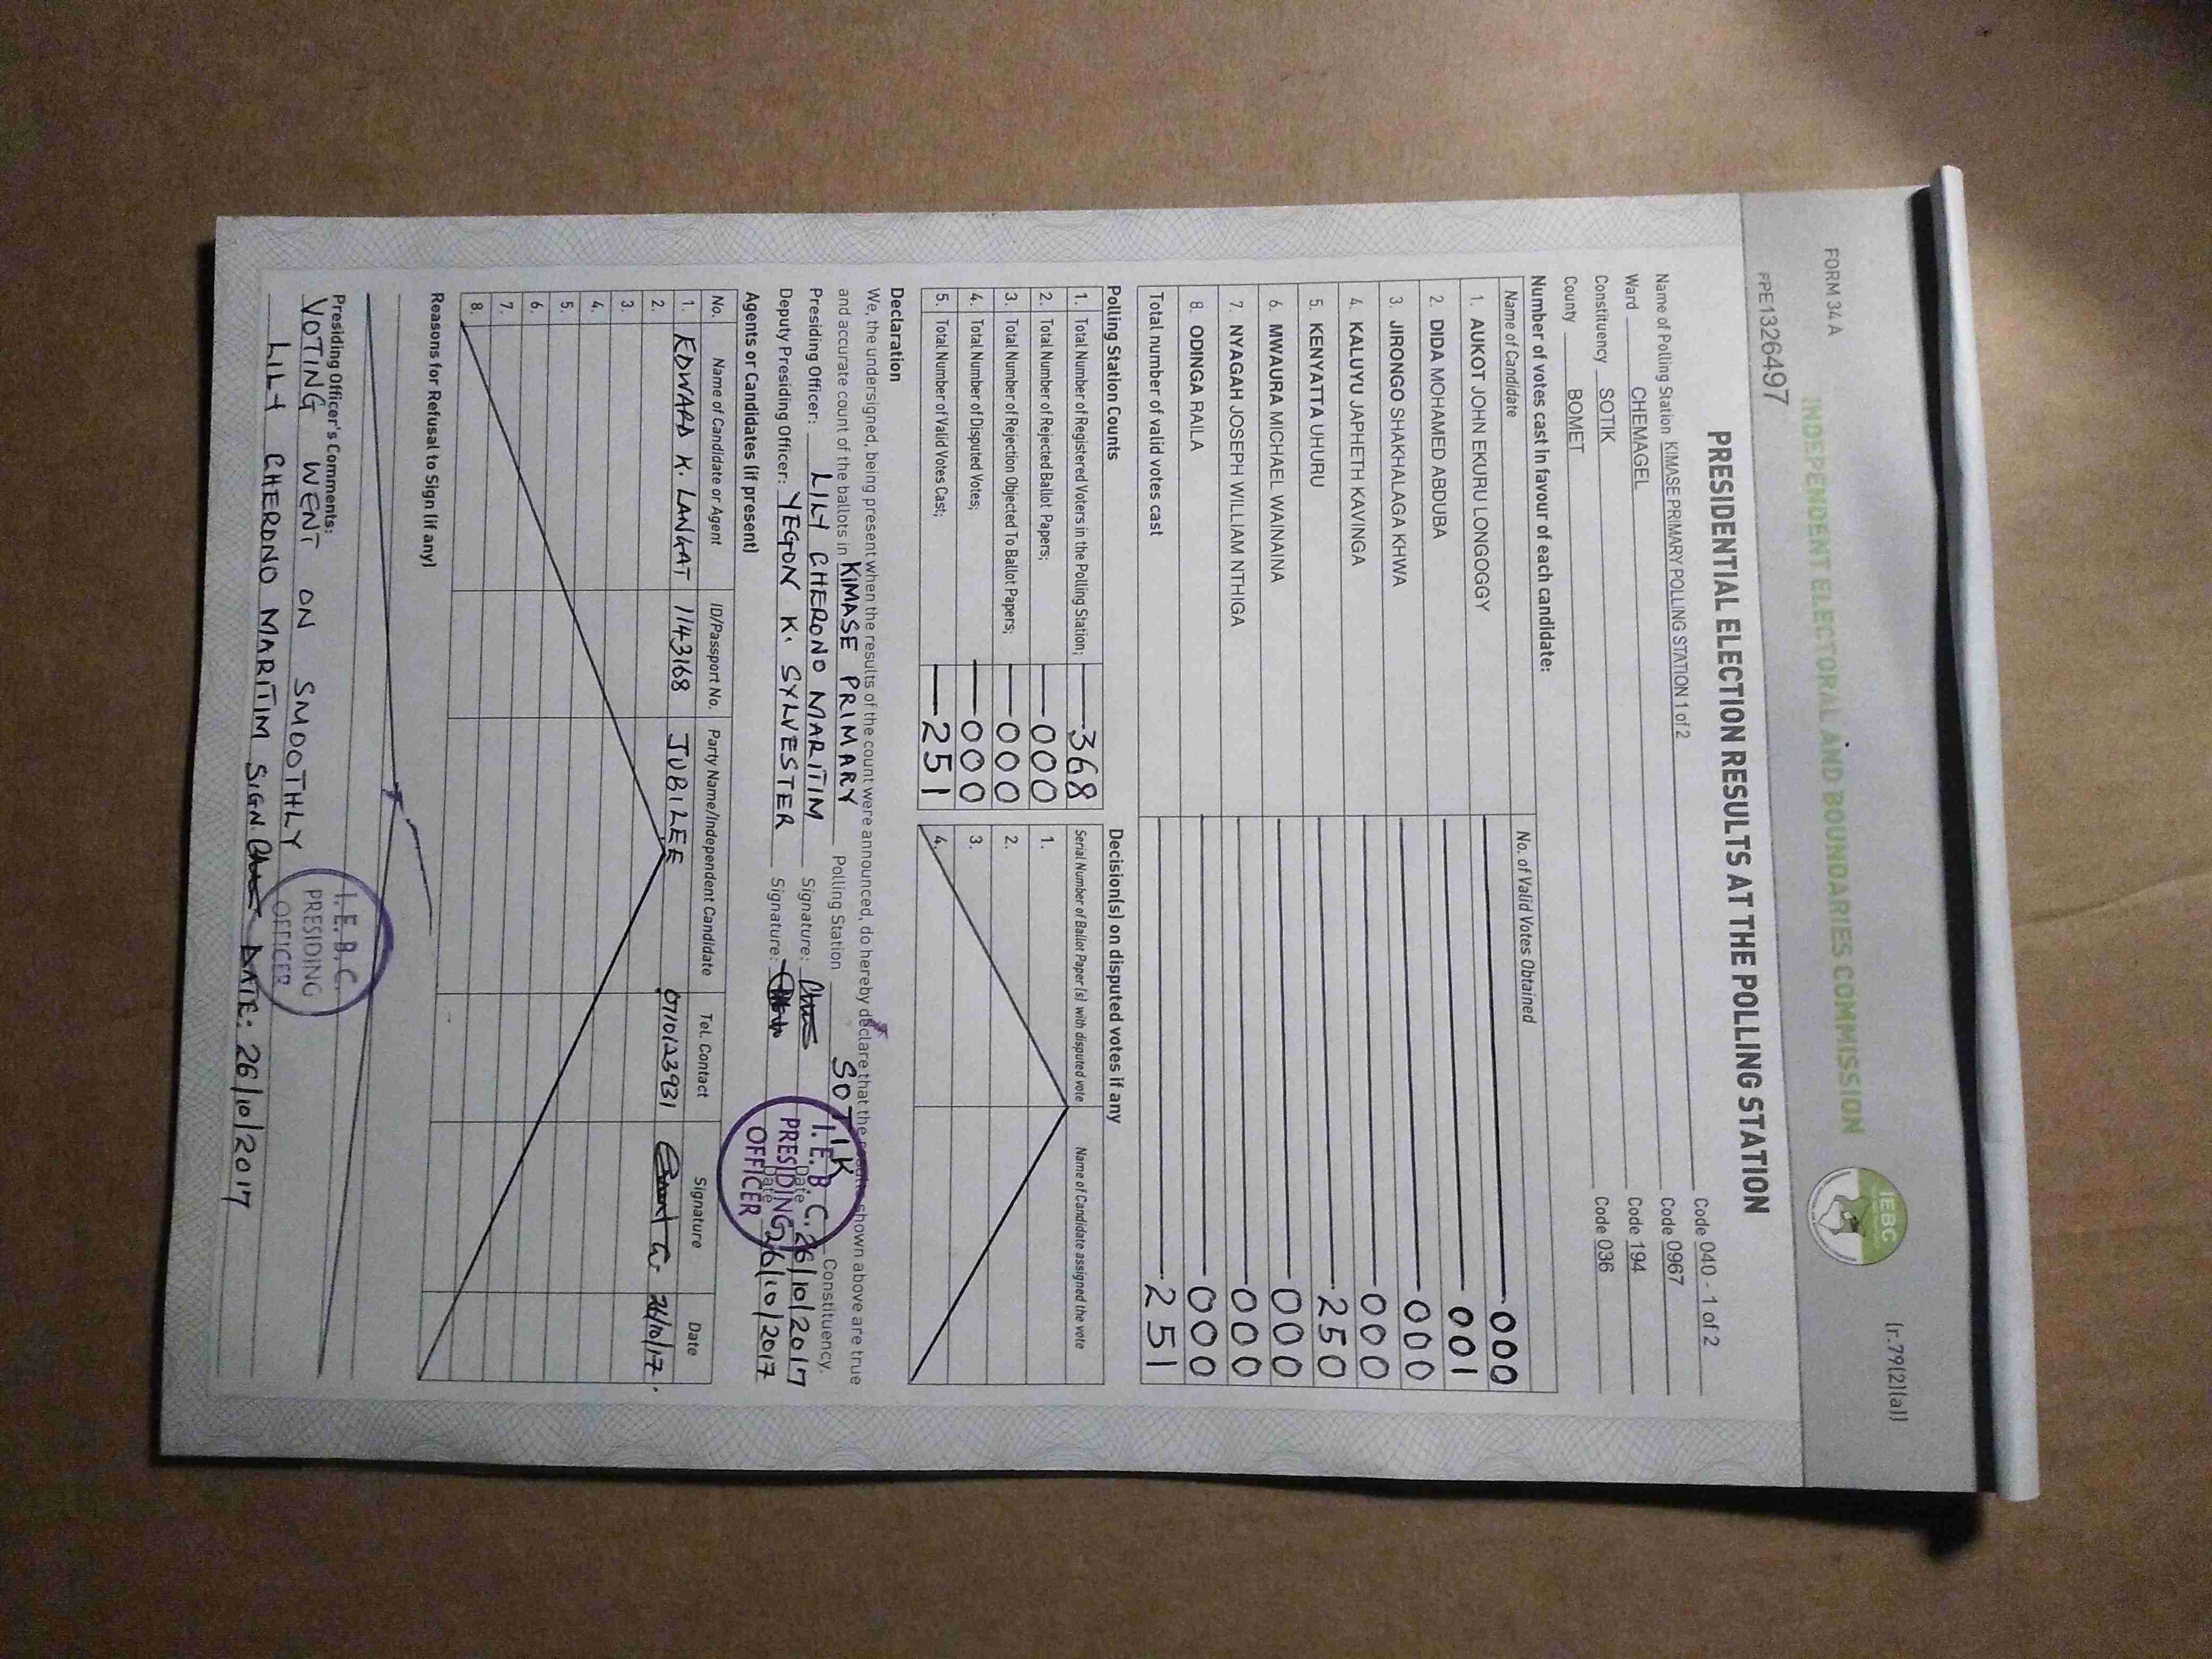 FORM 34 A
(r.79(2)(a))
INDEPENDENT ELECTORAL AND BOUNDARIES COMMISSION
IEBC
PPE1326497
PRESIDENTIAL ELECTION RESULTS AT THE POLLING STATION
Name of Polling Station KIMASE PRIMARY POLLING STATION 1 of 2 Code 040 - 1 of 2
Ward CHEMAGEL Code 0967
Constituency SOTIK Code 194
County BOMET Code 036
Number of votes cast in favour of each candidate:
Name of Candidate No. of Valid Votes Obtained
1. AUKOT JOHN EKURU LONGOGGY 000
2. DIDA MOHAMED ABDUBA 001
3. JIRONGO SHAKHALAGA KHWA 000
4. KALUYU JAPHETH KAVINGA 000
5. KENYATTA UHURU 250
6. MWAURA MICHAEL WAINAINA 000
7. NYAGAH JOSEPH WILLIAM NTHIGA 000
8. ODINGA RAILA 000
Total number of valid votes cast 251
Polling Station Counts Decision(s) on disputed votes if any
1. Total Number of Registered Voters in the Polling Station; 368 Serial Number of Ballot Paper(s) with disputed vote Name of Candidate assigned the vote
2. Total Number of Rejected Ballot Papers; 000 1.
3. Total Number of Rejection Objected To Ballot Papers; 000 2.
4. Total Number of Disputed Votes; 000 3.
5. Total Number of Valid Votes Cast; 251 4.
Declaration
We, the undersigned, being present when the results of the count were announced, do hereby declare that the results shown above are true
and accurate count of the ballots in KIMASE PRIMARY Polling Station SOTIK Constituency.
Presiding Officer: LILY CHERONO MARITIM Signature: Date 26/10/2017
Deputy Presiding Officer: YEGON K. SYLVESTER Signature: Date 26/10/2017
I.E.B.C.
PRESIDING
OFFICER
Agents or Candidates (if present)
No. Name of Candidate or Agent ID/Passport No. Party Name/Independent Candidate Tel. Contact Signature Date
1. EDWARD K. LANGAT 1143168 JUBILEE 0710123931 26/10/17.
2.
3.
4.
5.
6.
7.
8.
Reasons for Refusal to Sign (if any)
Presiding Officer's Comments:
VOTING WENT ON SMOOTHLY
LILY CHERONO MARITIM SIGN DATE: 26/10/2017
I.E.B.C.
PRESIDING
OFFICER